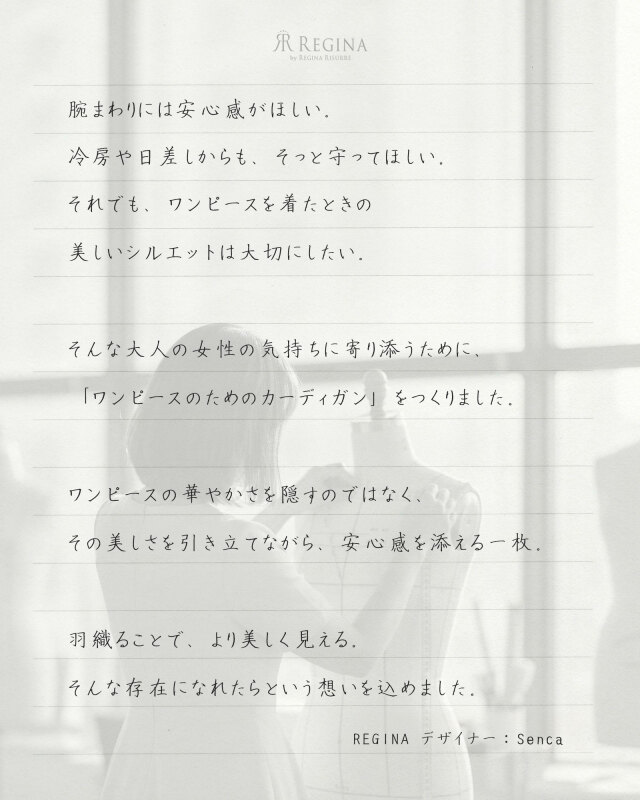 RR REGINA
by REGINA RISURRE
腕まわりには安心感がほしい。
冷房や日差しからも、そっと守ってほしい。
それでも、ワンピースを着たときの
美しいシルエットは大切にしたい。
そんな大人の女性の気持ちに寄り添うために、
「ワンピースのためのカーディガン」をつくりました。
ワンピースの華やかさを隠すのではなく、
その美しさを引き立てながら、安心感を添える一枚。
羽織ることで、より美しく見える。
そんな存在になれたらという想いを込めました。
REGINA デザイナー：Senca